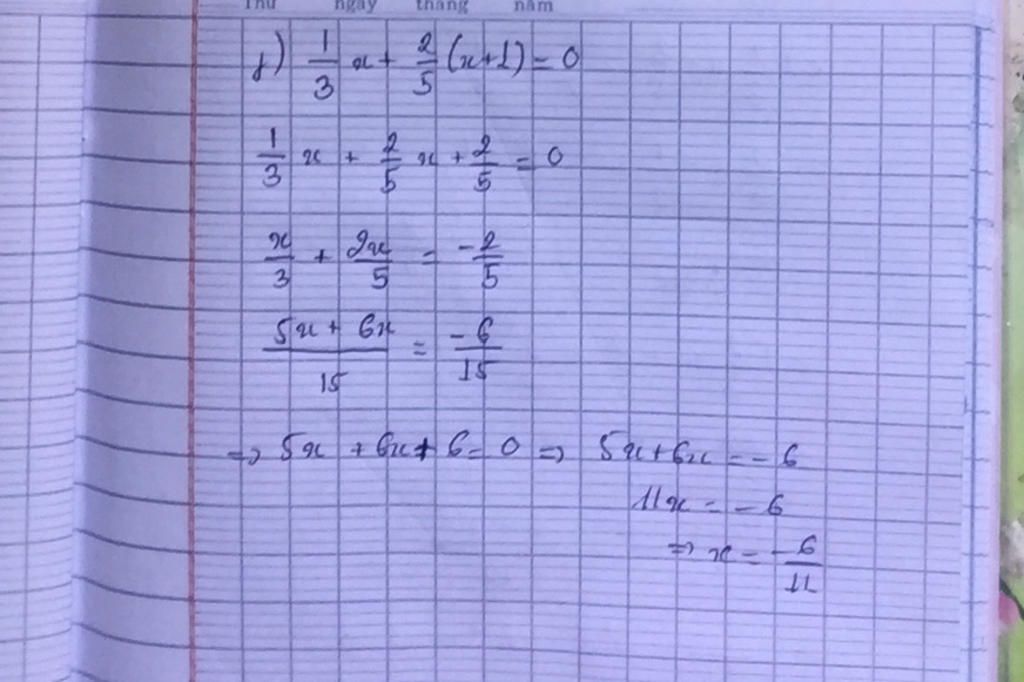 Thứ ngày tháng năm
f) 1/3 x + 2/5 (x+1) = 0
1/3 x + 2/5 x + 2/5 = 0
x/3 + 2x/5 = -2/5
(5x + 6x)/15 = -6/15
=> 5x + 6x + 6 = 0 => 5x + 6x = -6
11x = -6
=> x = -6/11